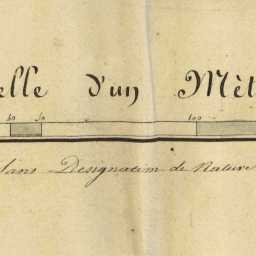 elle d'un Mèt
50 100
sans Designation de Nature